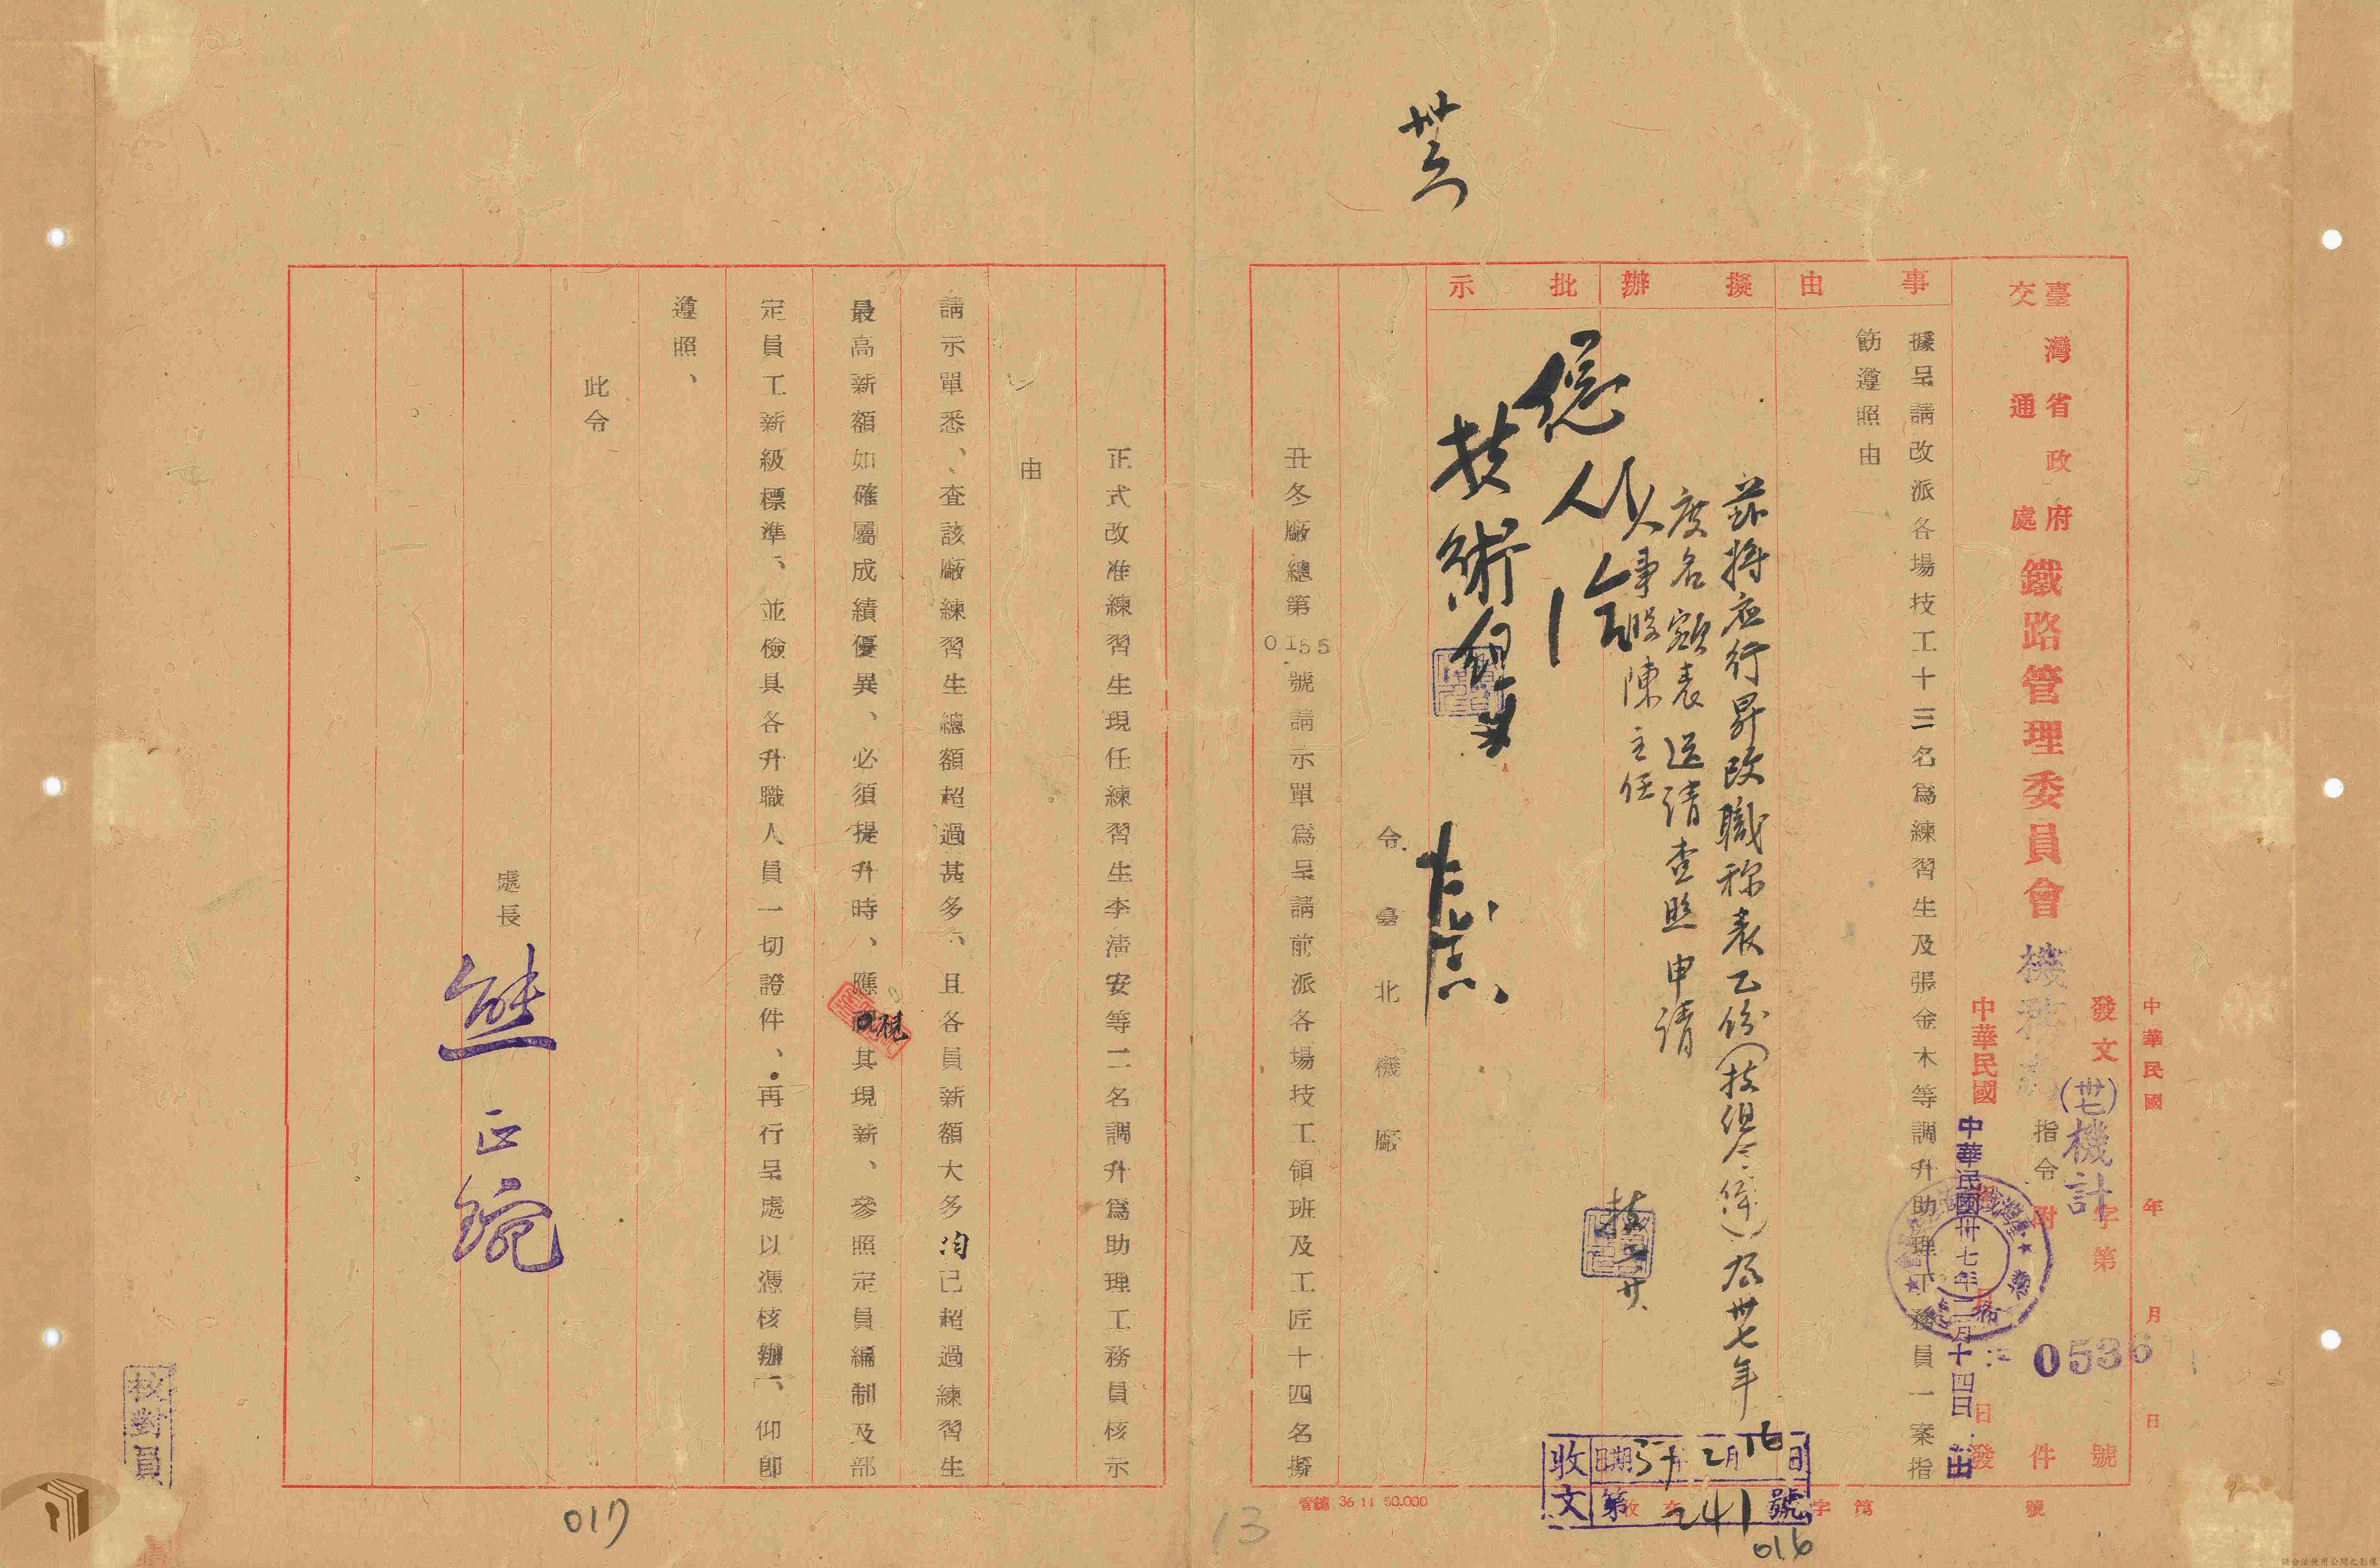 卅六
中華民國　年　月　日
發文(卅七)機計字第0536號
臺灣省政府
交通處
鐵路管理委員會
指令
附件
中華民國　年　月　日發
中華民國卅七年二月十四日
出
事由
據呈請改派各場技工十三名為練習生及張金木等調升助理工務員一案指
飭遵照由
擬辦
茲將應行昇改職稱表乙份
卅七年
度名額表送請查照申請
人事股陳主任
批示
技術組
令臺北機廠
丑冬廠總第0155號請示單為呈請前派各場技工領班及工匠十四名擬
正式改准練習生現任練習生李濤安等二名調升為助理工務員核示
由
請示單悉、查該廠練習生總額超過甚多、且各員薪額大多均已超過練習生
最高薪額如確屬成績優異、必須提升時、應視其現薪、參照定員編制及部
定員工薪級標準、並檢具各升職人員一切證件、再行呈處以憑核辦、仰即
遵照、
此令
處長
熊正琬
核對員
收文
日期37年2月16日
第241號
收文　字第　號
管總 36 11 50.000
13
016
017
請合法使用公開之影像